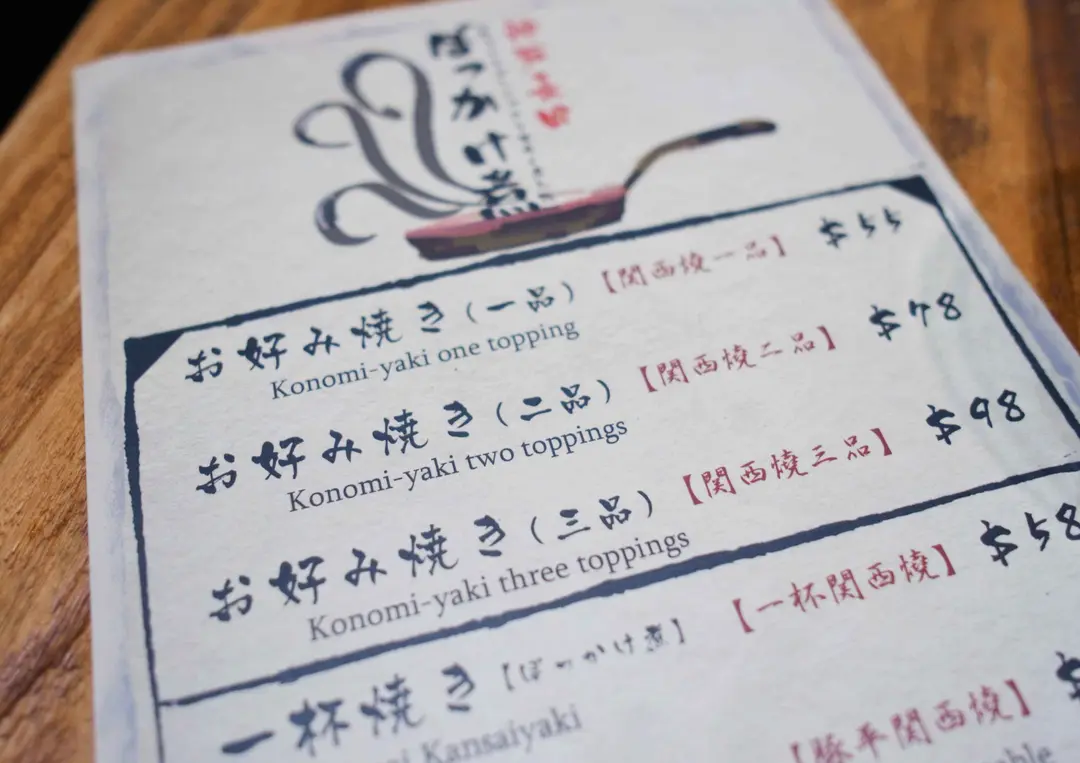 ぼっかけ煮
お好み焼き(一品)【関西燒一品】 $55
Konomi-yaki one topping
お好み焼き(二品)【関西燒二品】 $78
Konomi-yaki two toppings
お好み焼き(三品)【関西燒三品】 $98
Konomi-yaki three toppings
一杯焼き【ぼっかけ煮】【一杯関西燒】 $58
Kansaiyaki
【豚平関西燒】 $